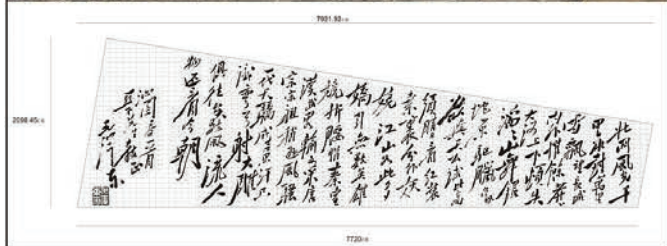 7931.93
2098.45
北國風光千
里冰封萬里
雪飄望長城
內外惟餘莽莽
大河上下頓失
滔滔山舞銀
蛇原驅臘象
欲與天公試比高
須晴日看紅裝
素裹分外妖
嬈江山如此多
嬌引無數英雄
競折腰惜秦皇
漢武略輸文采唐
宗宋祖稍遜風騷
一代天驕成吉思汗只
識彎弓射大雕
俱往矣數風流人
物還看今朝
沁園春一首
教正
毛澤東
7720